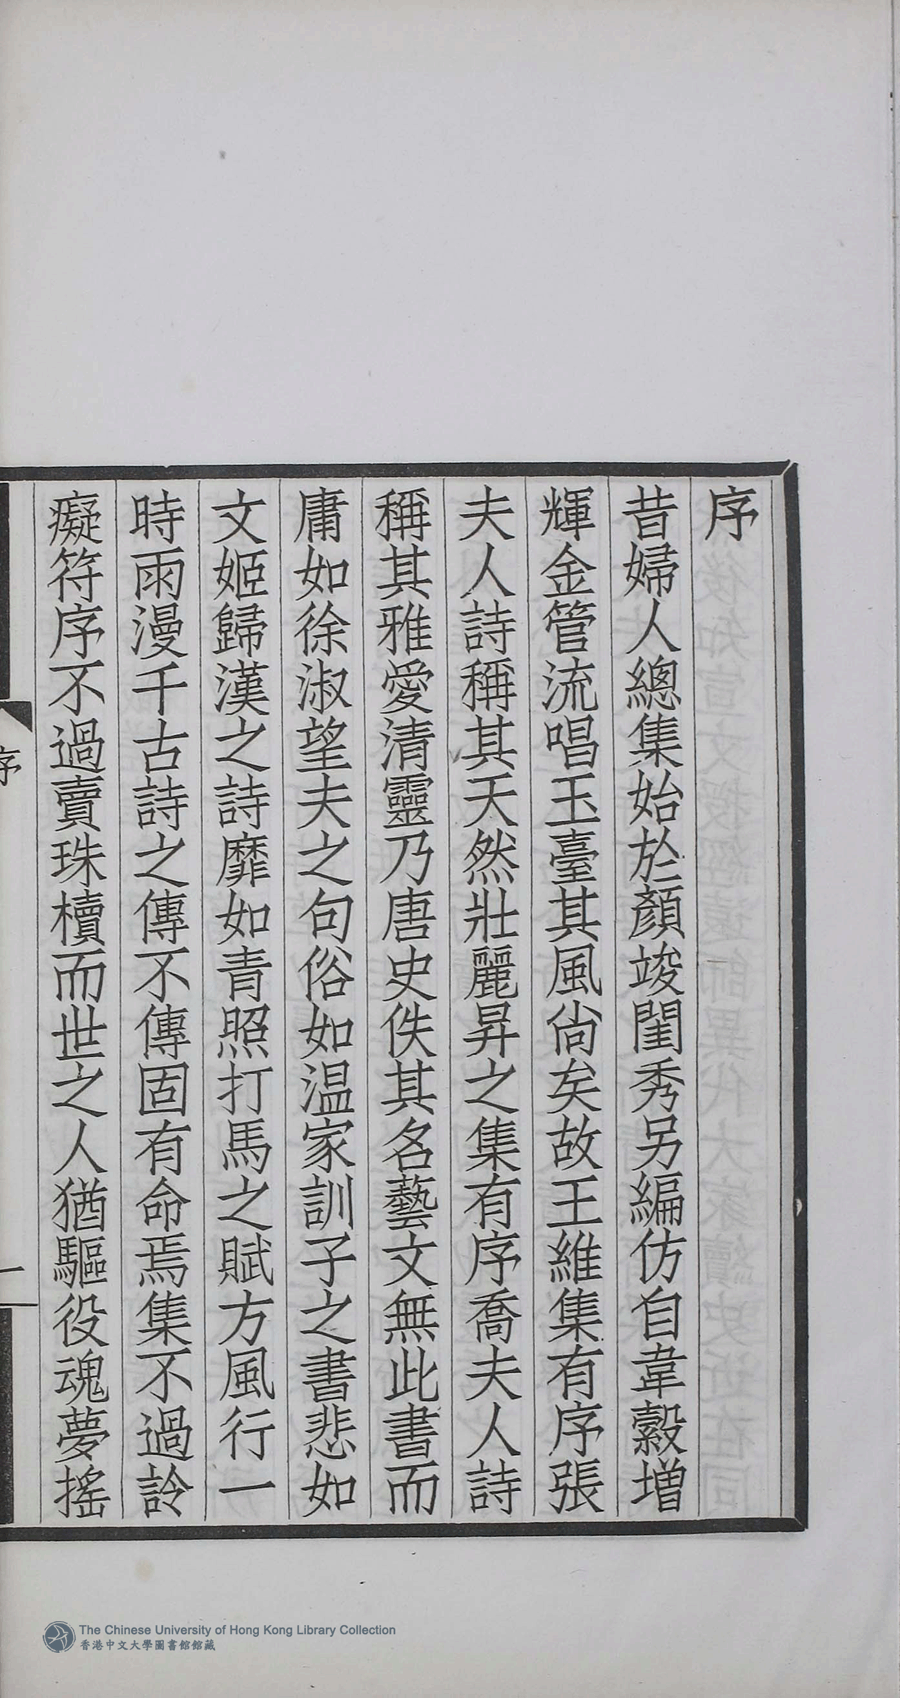 序
昔婦人總集始於顏竣閨秀另編仿自韋縠增
輝金管流唱玉臺其風尚矣故王維集有序張
夫人詩稱其天然壯麗昇之集有序喬夫人詩
稱其雅愛清靈乃唐史佚其名藝文無此書而
庸如徐淑望夫之句俗如温家訓子之書悲如
文姬歸漢之詩靡如青照打馬之賦方風行一
時雨漫千古詩之傳不傳固有命焉集不過詅
癡符序不過賣珠櫝而世之人猶驅役魂夢搖
序
一
The Chinese University of Hong Kong Library Collection
香港中文大學圖書館館藏